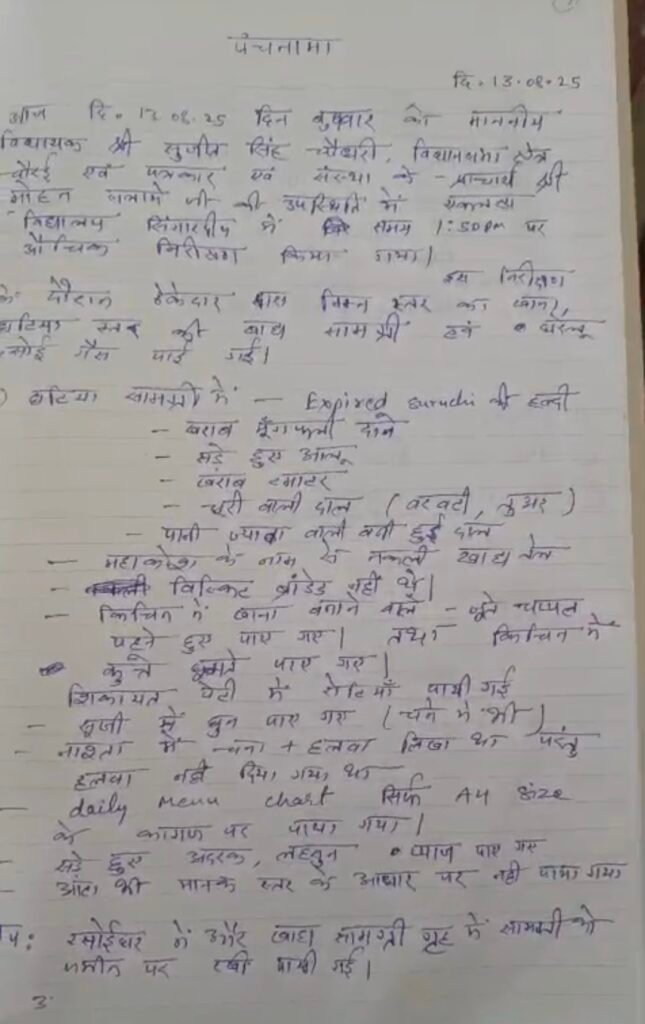 पंचनामा
दि. 13.08.25
आज दि. 13.08.25 दिन बुधवार को माननीय
विधायक श्री सुजीत सिंह चौधरी, विधानसभा क्षेत्र
चौरई एवं पत्रकार एवं संस्था के प्राचार्य श्री
मोहन जी की उपस्थिति में एकलव्य
विद्यालय सिंगारदीप में समय 1:50 pm पर
औचिक निरीक्षण किया गया।
इस निरीक्षण
के दौरान ठेकेदार द्वारा निम्न स्तर का खाना,
घटिया स्तर की खाद्य सामग्री एवं घरेलू
रसोई गैस पाई गई।
घटिया सामग्री में - Expired suruchi की हल्दी
- खराब मूँगफली दाने
- सड़े हुए आलू
- खराब टमाटर
- चूरी वाली दाल (बरबटी, तुअर)
- पानी ज्यादा वाली बनी हुई दाल
- महाकोश के नाम से नकली खाद्य तेल
- बिस्किट ब्रांडेड नही थे।
- किचिन में खाना बनाने वाले - जूते चप्पल
पहने हुए पाए गए। तथा किचिन में
कुत्ते घूमते पाए गए।
शिकायत पेटी में रोटियाँ पायी गई
- सूजी में घुन पाए गए (चने मे भी)
- नाश्ता में चना + हलवा लिखा था परंतु
हलवा नही दिया गया था
- daily menu chart सिर्फ A4 size
के कागज पर पाया गया।
- सड़े हुए अदरक, लहसुन प्याज पाए गए
- आटा भी मानक स्तर के आधार पर नही पाया गया
रसोईघर में और खाद्य सामग्री गृह में सामग्री को
जमीन पर रखी पायी गई।
3